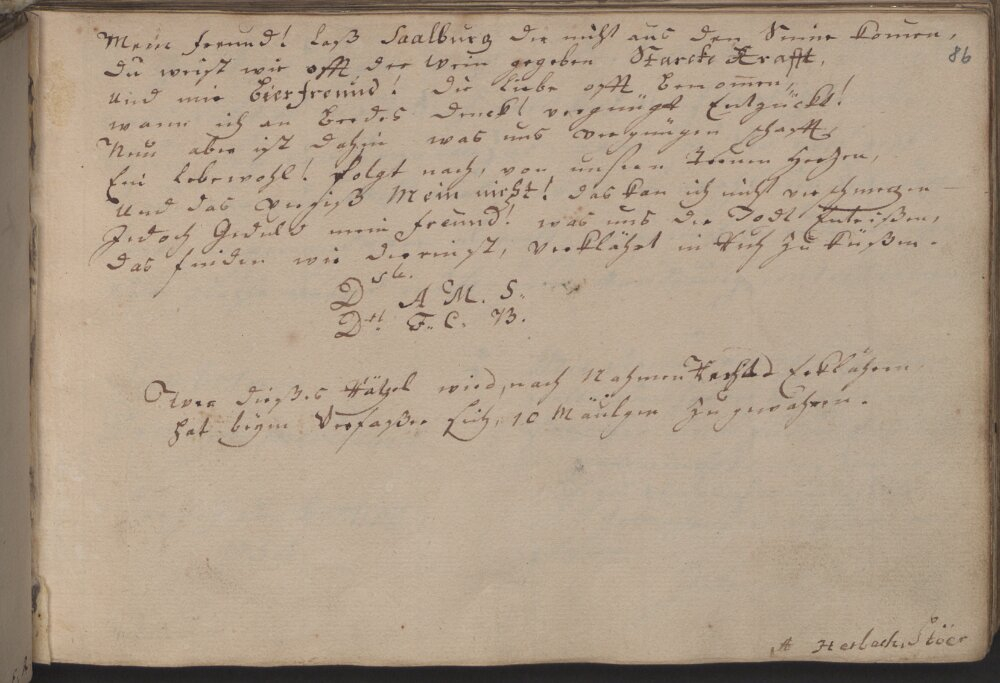 Mein freund! laß Saalburg dir nicht aus den Sinne komen,
86
du weist wie offt der Wein gegeben Starcke Krafft,
und mir Bierfreund! die liebe offt benom̅en,
wann ich an beedes denck! vergnügt Entzückt!
Nun aber ist dahin was uns vergnügen schafft,
Ein lebewohl! folgt nach, von unsern treuen Hertzen,
und das vergiß Mein nicht! das kan ich nicht verschmertzen
Jedoch Gedult mein freund! was uns der Todt Entrißen,
das finden wir dereinst, verklährt in Ruh zu küßen.
A M. S.
F. C. B.
Wer dießes Rätzel wird, nach Nahmen Recht Erklähren,
hat beym Verfaßer sich, 10 Mäulgen zu gewähren.
A Herbach, Stöer